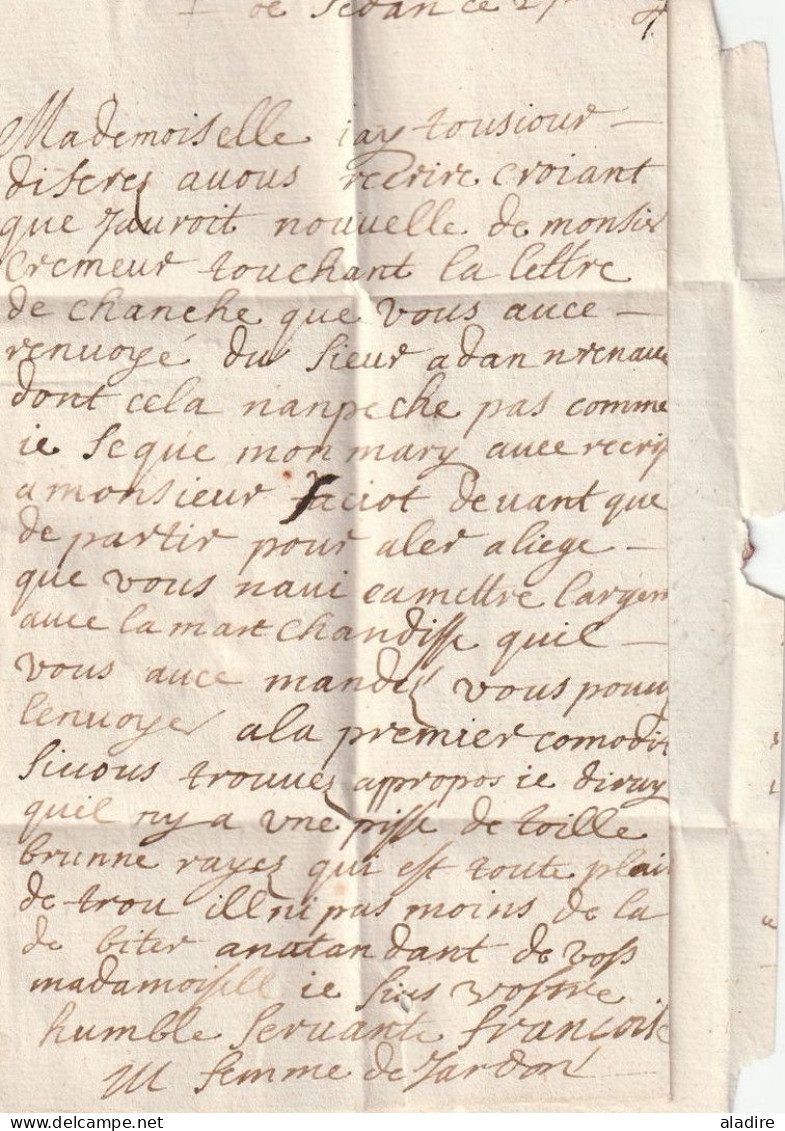 de Sedan ce
Mademoiselle iay tousiour
diferez avous recrire croiant
que Jauroit nouvelle de monsier
cremeur touchant la lettre
de chanche que vous auce
renuoyé du sieur adan
dont cela nanpeche pas comme
ie seque mon mary auee recrip
a monsieur Jaciot devant que
de partir pour aler aliege
que vous naui eamettre largen
auce la mart chandisse quil
vous auce mandez vous pouuez
lenuoyer ala premier comodit
sivous trouvez appropos ie diray
quil ny a vne pisse de toille
brunne rayez qui est toute plain
de trou ill ni pas moins de la
de biter anatan dant de voss
madamoiselle ie suis vostre
humble servante francoise
M femme de Jardon
aladire
delcampe.net